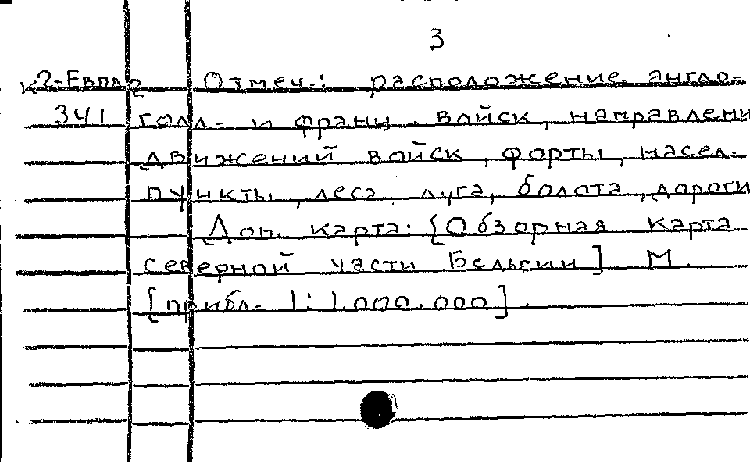 3
к2-Евпл2 Отмеч.: расположение англо-
341 голл.- и франц. войск, направлени
движений войск, форты, насел.
пункты, леса, луга, болота, дороги
Доп. карта: [Обзорная карта
северной части Бельгии] М.
[прибл. 1:1.000.000].